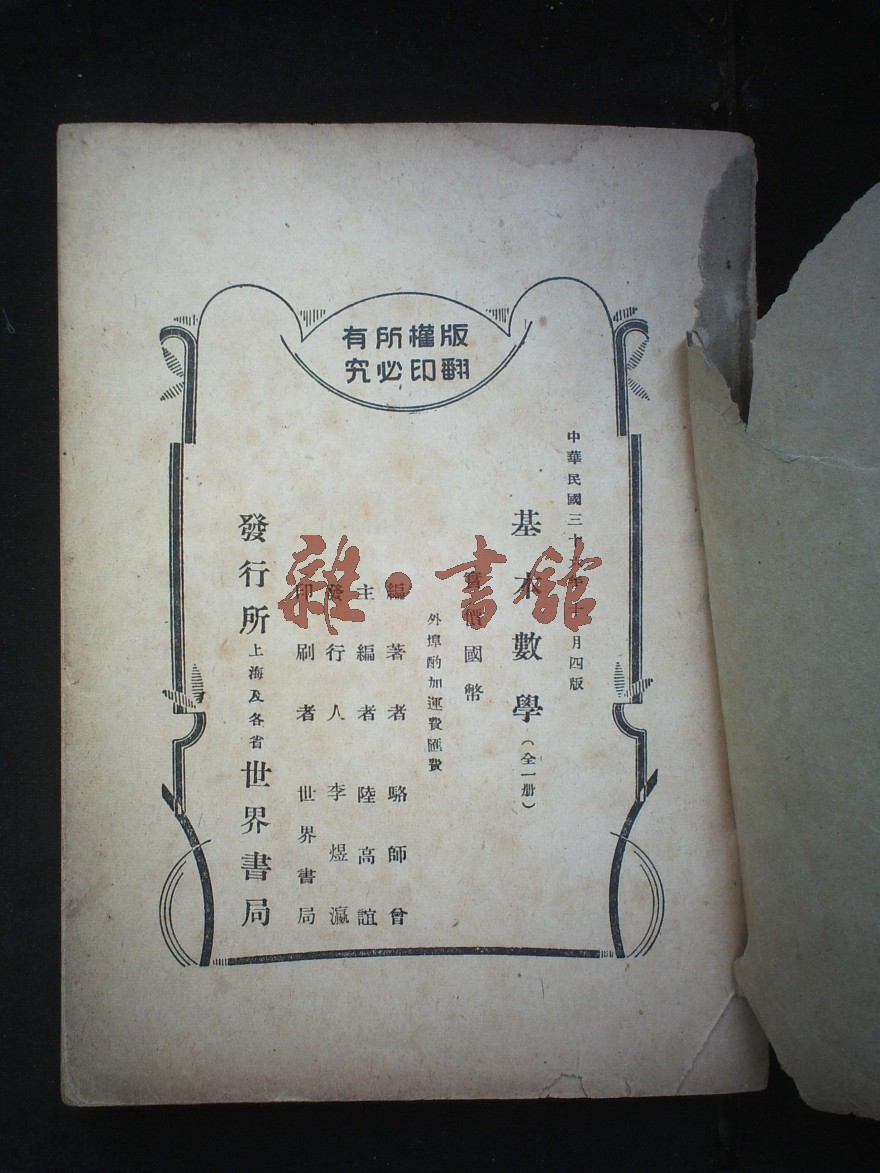 版權所有
翻印必究
中華民國三十六年十一月四版
基本數學(全一册)
實價國幣
外埠酌加運費匯費
編著者 駱師曾
主編者 陸高誼
發行人 李煜瀛
印刷者 世界書局
發行所 上海及各省 世界書局
雜·書館